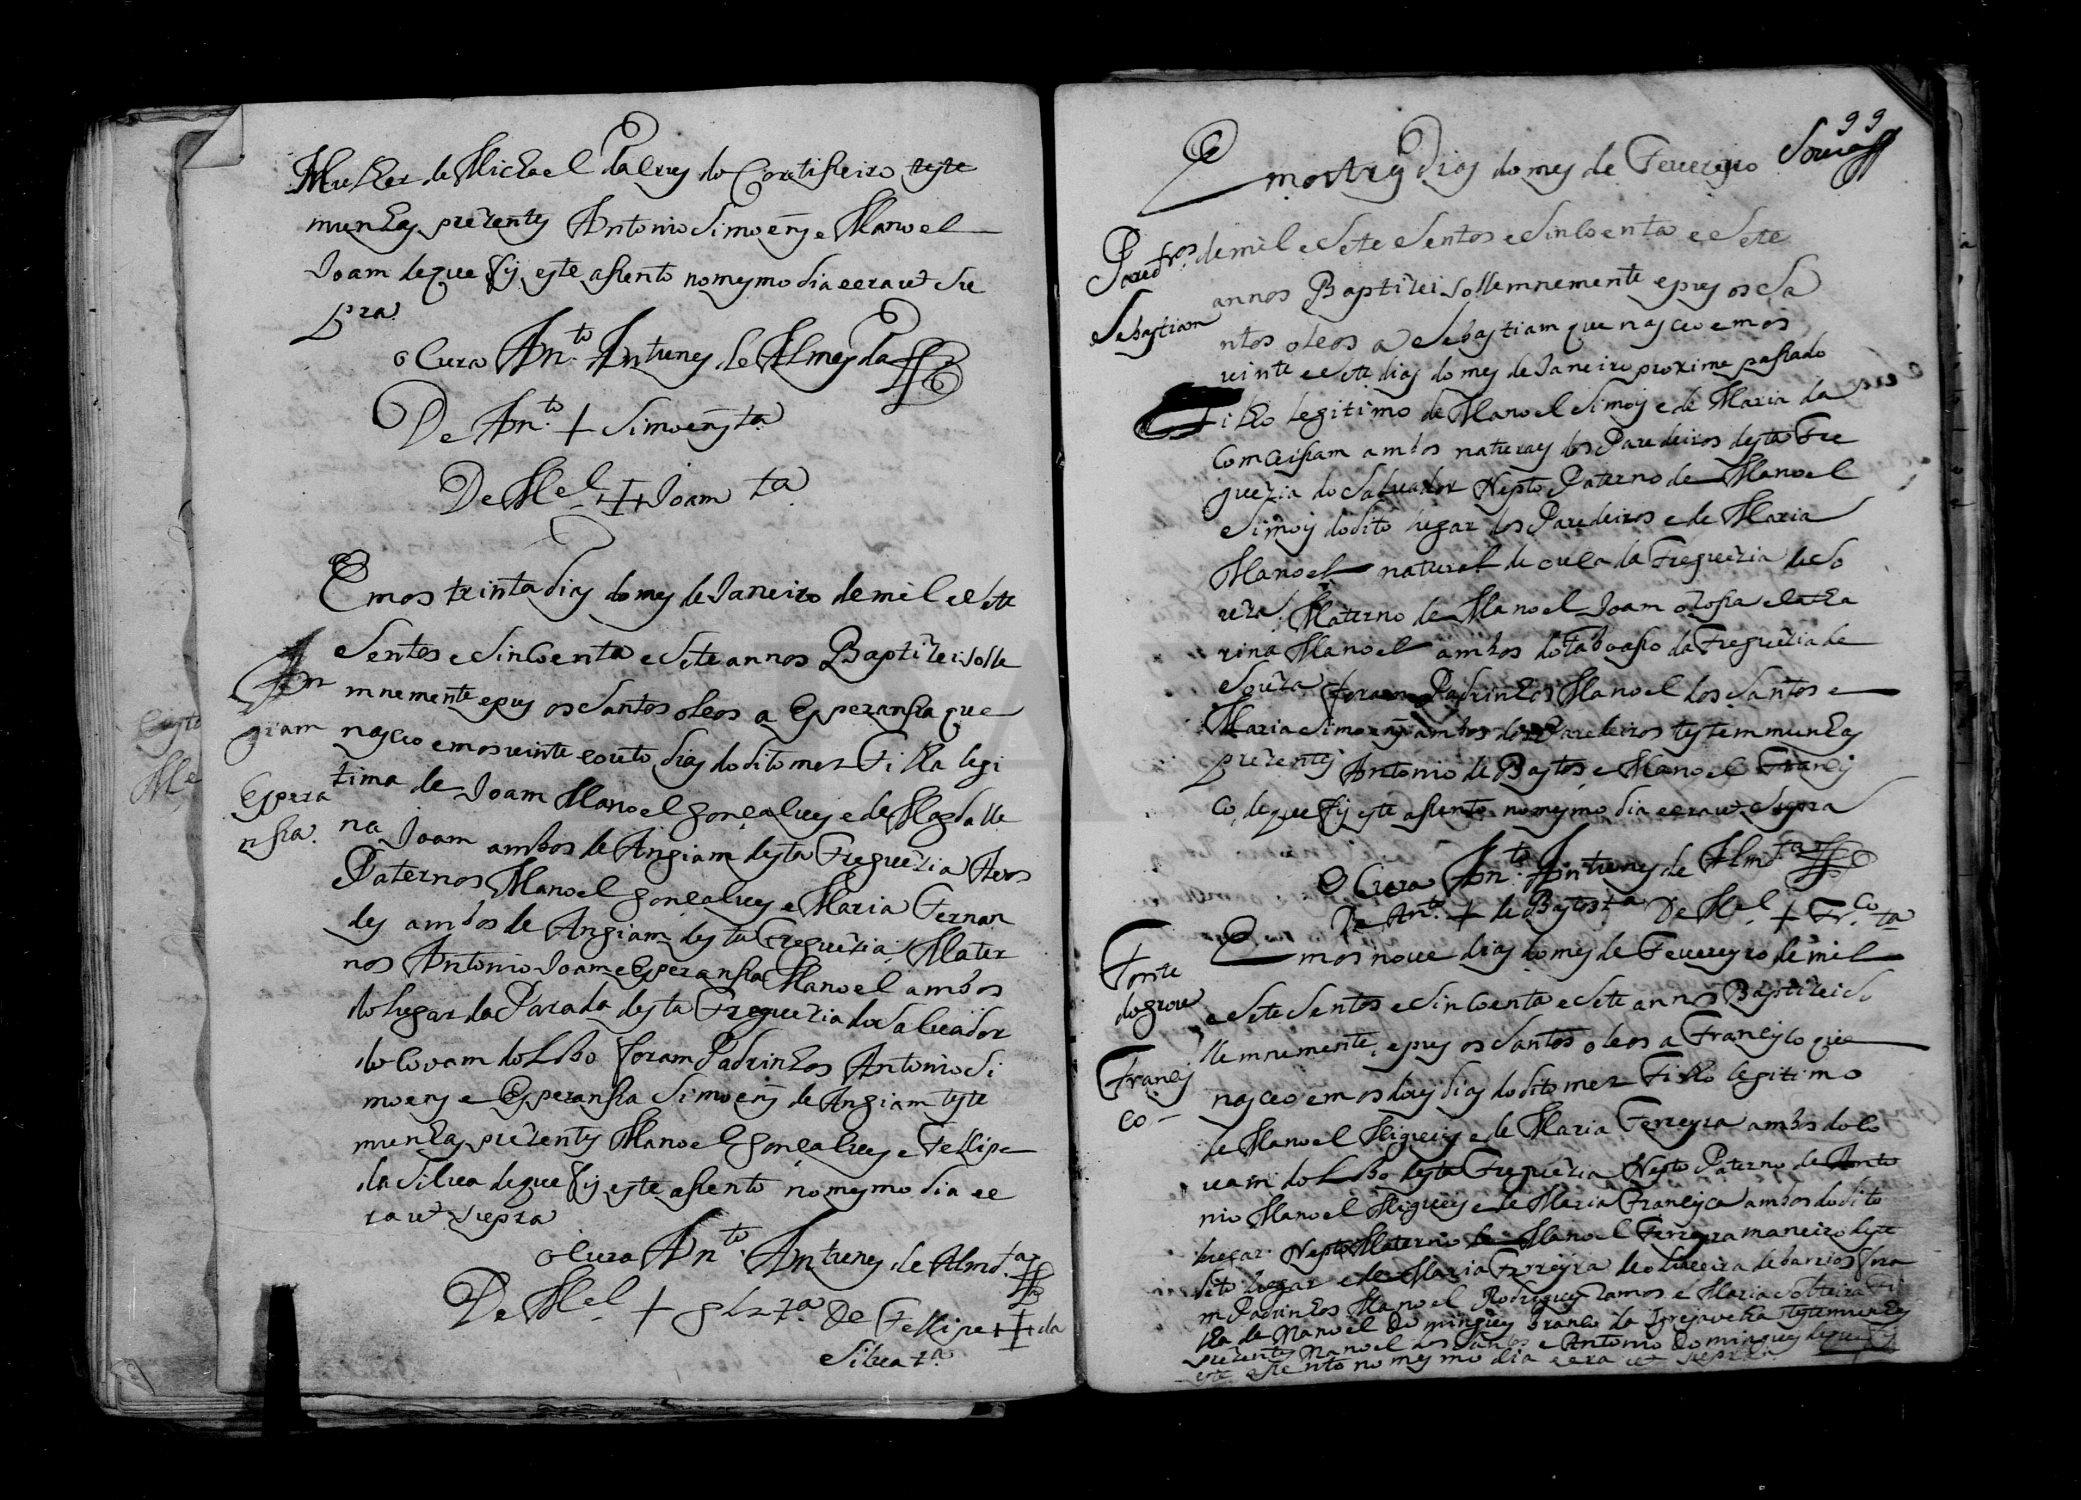 Mulher de Michael Dalves do Cortisseiro teste
munhas prezentes Antonio Simoens e Manoel
Joam de que fis este assento no mesmo dia e era ut su
pra
o Cura Ant.to Antunes de Almeyda
De Ant.to + Simoens t.a
De M.el + Joam t.a
Emos trinta dias do mes de Janeiro de mil e sete
sentos e sincoenta e sete annos Baptizei solle
mnemente e pus os santos oleos a Esperansa que
nasceo emos vinte e outo dias do dito mez Filha legi
tima de Joam Manoel Gonçalves e de Magdalle
na Joam ambos de Angiam desta Freguezia Avos
Paternos Manoel Gonçalves e Maria Fernan
des ambos de Angiam desta Freguezia. Mater
nos Antonio Joam e Esperansa Manoel ambos
do lugar da Parada desta Freguezia do Salvador
do Covam do Lobo foram Padrinhos Antonio Si
moens e Esperansa Simoens de Angiam teste
munhas prezentes Manoel Gonçalves e Fellipe
da Silva de que fis este assento no mesmo dia e e
ra ut supra
o Cura Ant.to Antunes de Almd.a
De M.el + Glz t.a De Fellipe + da
Silva t.a
An
giam
Espera
nsa.
99
Souza
Emos tres dias do mes de Fevereyro
de mil e sete sentos e sincoenta e sete
annos Baptizei sollemnemente e pus os sa
ntos oleos a Sebastiam que nasceo emos
vinte e sete dias do mes de Janeiro proximo passado
Filho legitimo de Manoel Simois e de Maria da
Comceissam ambos naturais dos Paredeiros desta Fre
guezia do Salvador Nepto Paterno de Manoel
Simois do dito lugar dos Paredeiros e de Maria
Manoel natural de ouca da Freguezia de So
uza. Materno de Manoel Joam e Catha
rina Manoel ambos do Taboasso da Freguezia de
Souza foram Padrinhos Manoel dos Santos e
Maria Simoens ambos dos Paredeiros testemmunhas
prezentes Antonio de Bastos e Manoel Francis
co de que fis este assento no mesmo dia e era ut supra
O Cura Ant.to Antunes de Almd.a
De Ant.o + de Bastos t.a De M.el + Fr.co t.a
Pared.ros
Sebastiam
Emos nove dias do mes de Fevereyro de mil
e sete sentos e sincoenta e sete annos Baptizei So
llemnemente, e pus os santos oleos a Francisco que
nasceo emos dois dias do dito mez Filho legitimo
de Manoel Migueis e de Maria Ferreyra ambos do Co
vam do Lobo desta Freguezia Nepto Paterno de Anto
nio Manoel Migueis e de Maria Francisca ambos do dito
lugar. Nepto Materno de Manoel Ferreyra maneiro deste
dito lugar e de Maria Ferreyra de oliveira de barrios fora
m Padrinhos Manoel Rodrigues Ramos e Maria Solteira Fi
lha de Manoel Domingues branco da Igrejavelha testemunhas
prezentes Manoel dos Santos e Antonio Domingues de que fis
este assento no mesmo dia e era ut supra.
Fonte
do grou
Francis
co